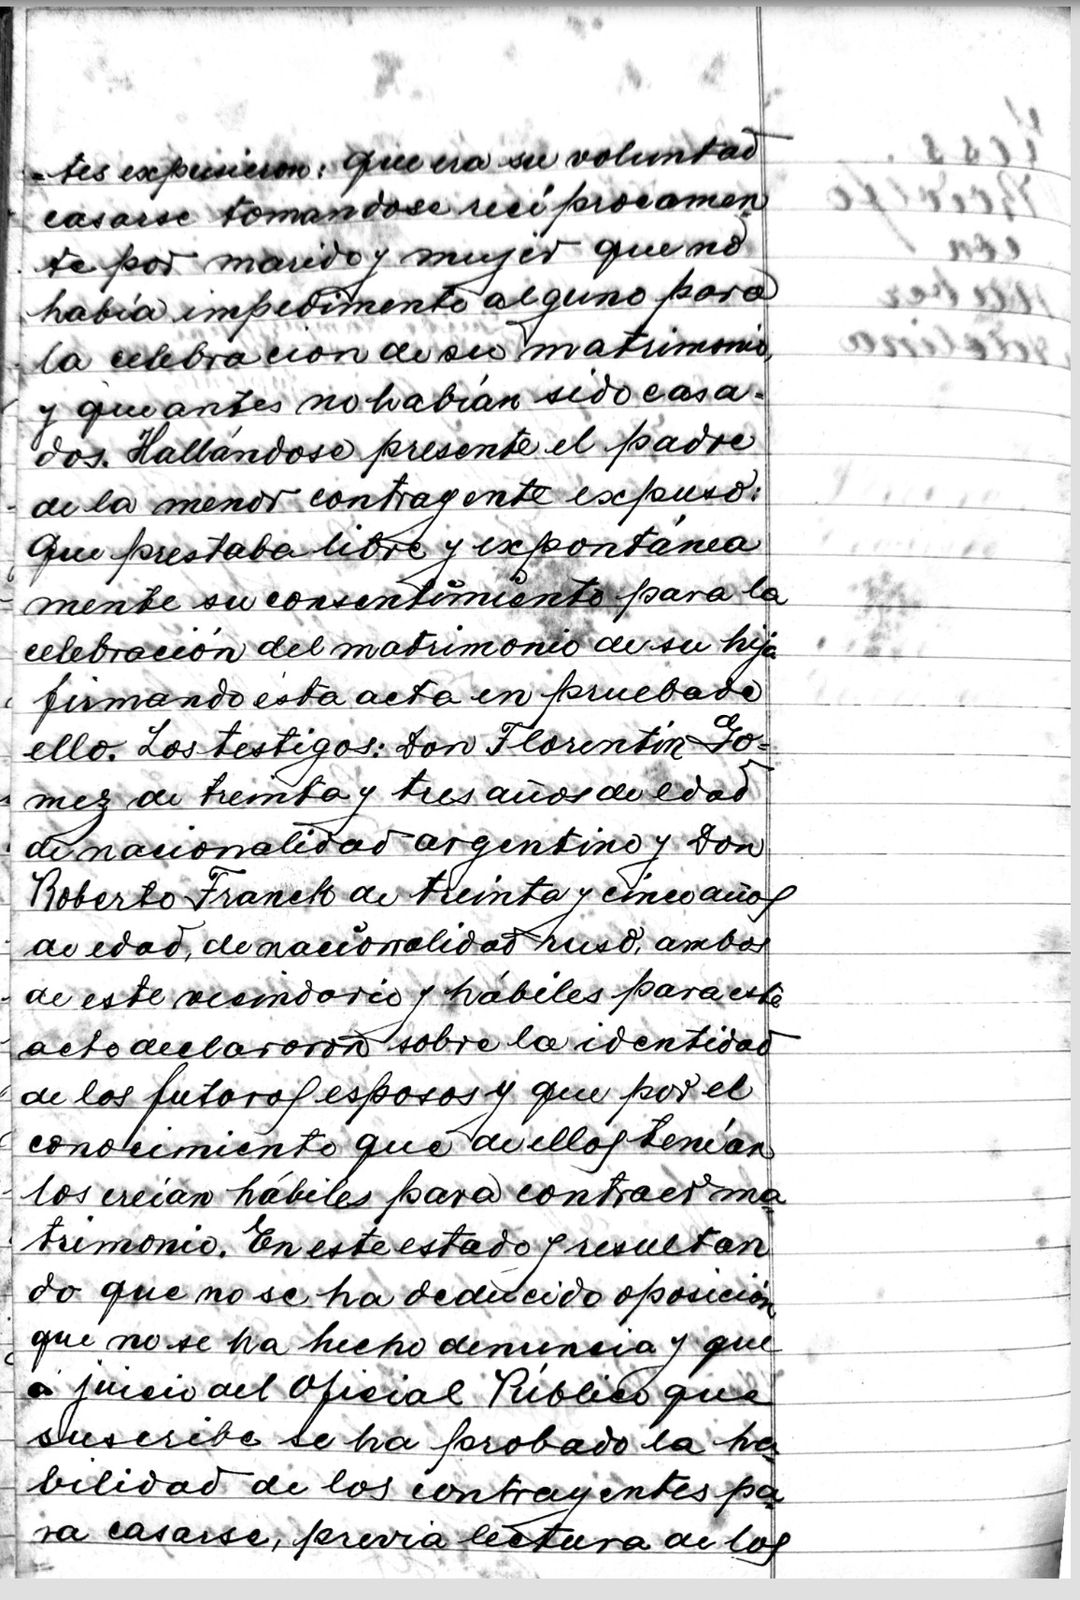 -tes expusieron: Que era su voluntad
casarse tomandose recíprocamen
te por marido y mujer que no
había impedimento alguno para
la celebracion de su matrimonio,
y que antes no habían sido casa-
dos. Hallándose presente el padre
de la menor contrayente expuso:
Que prestaba libre y expontánea
mente su consentimiento para la
celebración del matrimonio de su hija
firmando ésta acta en prueba de
ello. Los testigos: Don Florentín Go=
mez de treinta y tres años de edad
de nacionalidad argentino y Don
Roberto Franck de treinta y cinco años
de edad, de nacionalidad ruso, ambos
de este vecindario y hábiles para este
acto declararon sobre la identidad
de los futuros esposos y que por el
conocimiento que de ellos tenían
los creían hábiles para contraer ma
trimonio. En este estado y resultan
do que no se ha deducido oposición
que no se ha hecho denuncia y que
á juicio del Oficial Público que
suscribe se ha probado la ha
bilidad de los contrayentes pa
ra casarse, previa lectura de los